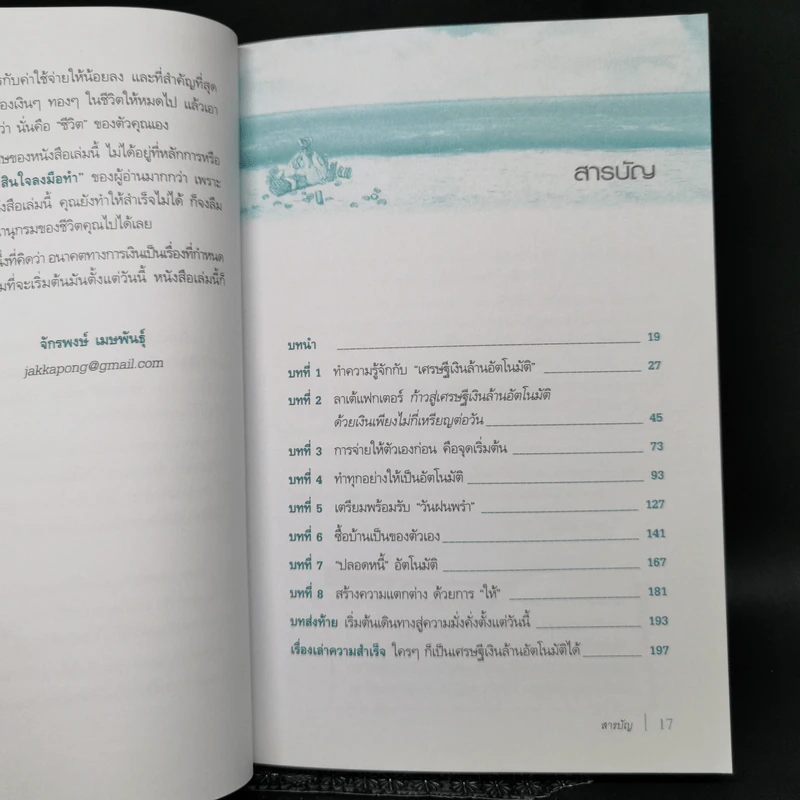 กับค่าใช้จ่ายให้น้อยลง และที่สำคัญที่สุด
องเงินๆ ทองๆ ในชีวิตให้หมดไป แล้วเอา
ว่า นั่นคือ "ชีวิต" ของตัวคุณเอง
ของหนังสือเล่มนี้ ไม่ได้อยู่ที่หลักการหรือ
สินใจลงมือทำ" ของผู้อ่านมากกว่า เพราะ
สือเล่มนี้ คุณยังทำให้สำเร็จไม่ได้ ก็จงลืม
านุกรมของชีวิตคุณไปได้เลย
นึ่งที่คิดว่า อนาคตทางการเงินเป็นเรื่องที่กำหนด
มที่จะเริ่มต้นมันตั้งแต่วันนี้ หนังสือเล่มนี้ก็
จักรพงษ์ เมษพันธุ์
jakkapong@gmail.com
สารบัญ
บทนำ 19
บทที่ 1 ทำความรู้จักกับ "เศรษฐีเงินล้านอัตโนมัติ" 27
บทที่ 2 ลาเต้แฟกเตอร์ ก้าวสู่เศรษฐีเงินล้านอัตโนมัติ
ด้วยเงินเพียงไม่กี่เหรียญต่อวัน 45
บทที่ 3 การจ่ายให้ตัวเองก่อน คือจุดเริ่มต้น 73
บทที่ 4 ทำทุกอย่างให้เป็นอัตโนมัติ 93
บทที่ 5 เตรียมพร้อมรับ "วันฝนพรำ" 127
บทที่ 6 ซื้อบ้านเป็นของตัวเอง 141
บทที่ 7 "ปลอดหนี้" อัตโนมัติ 167
บทที่ 8 สร้างความแตกต่าง ด้วยการ "ให้" 181
บทส่งท้าย เริ่มต้นเดินทางสู่ความมั่งคั่งตั้งแต่วันนี้ 193
เรื่องเล่าความสำเร็จ ใครๆ ก็เป็นเศรษฐีเงินล้านอัตโนมัติได้ 197
สารบัญ | 17